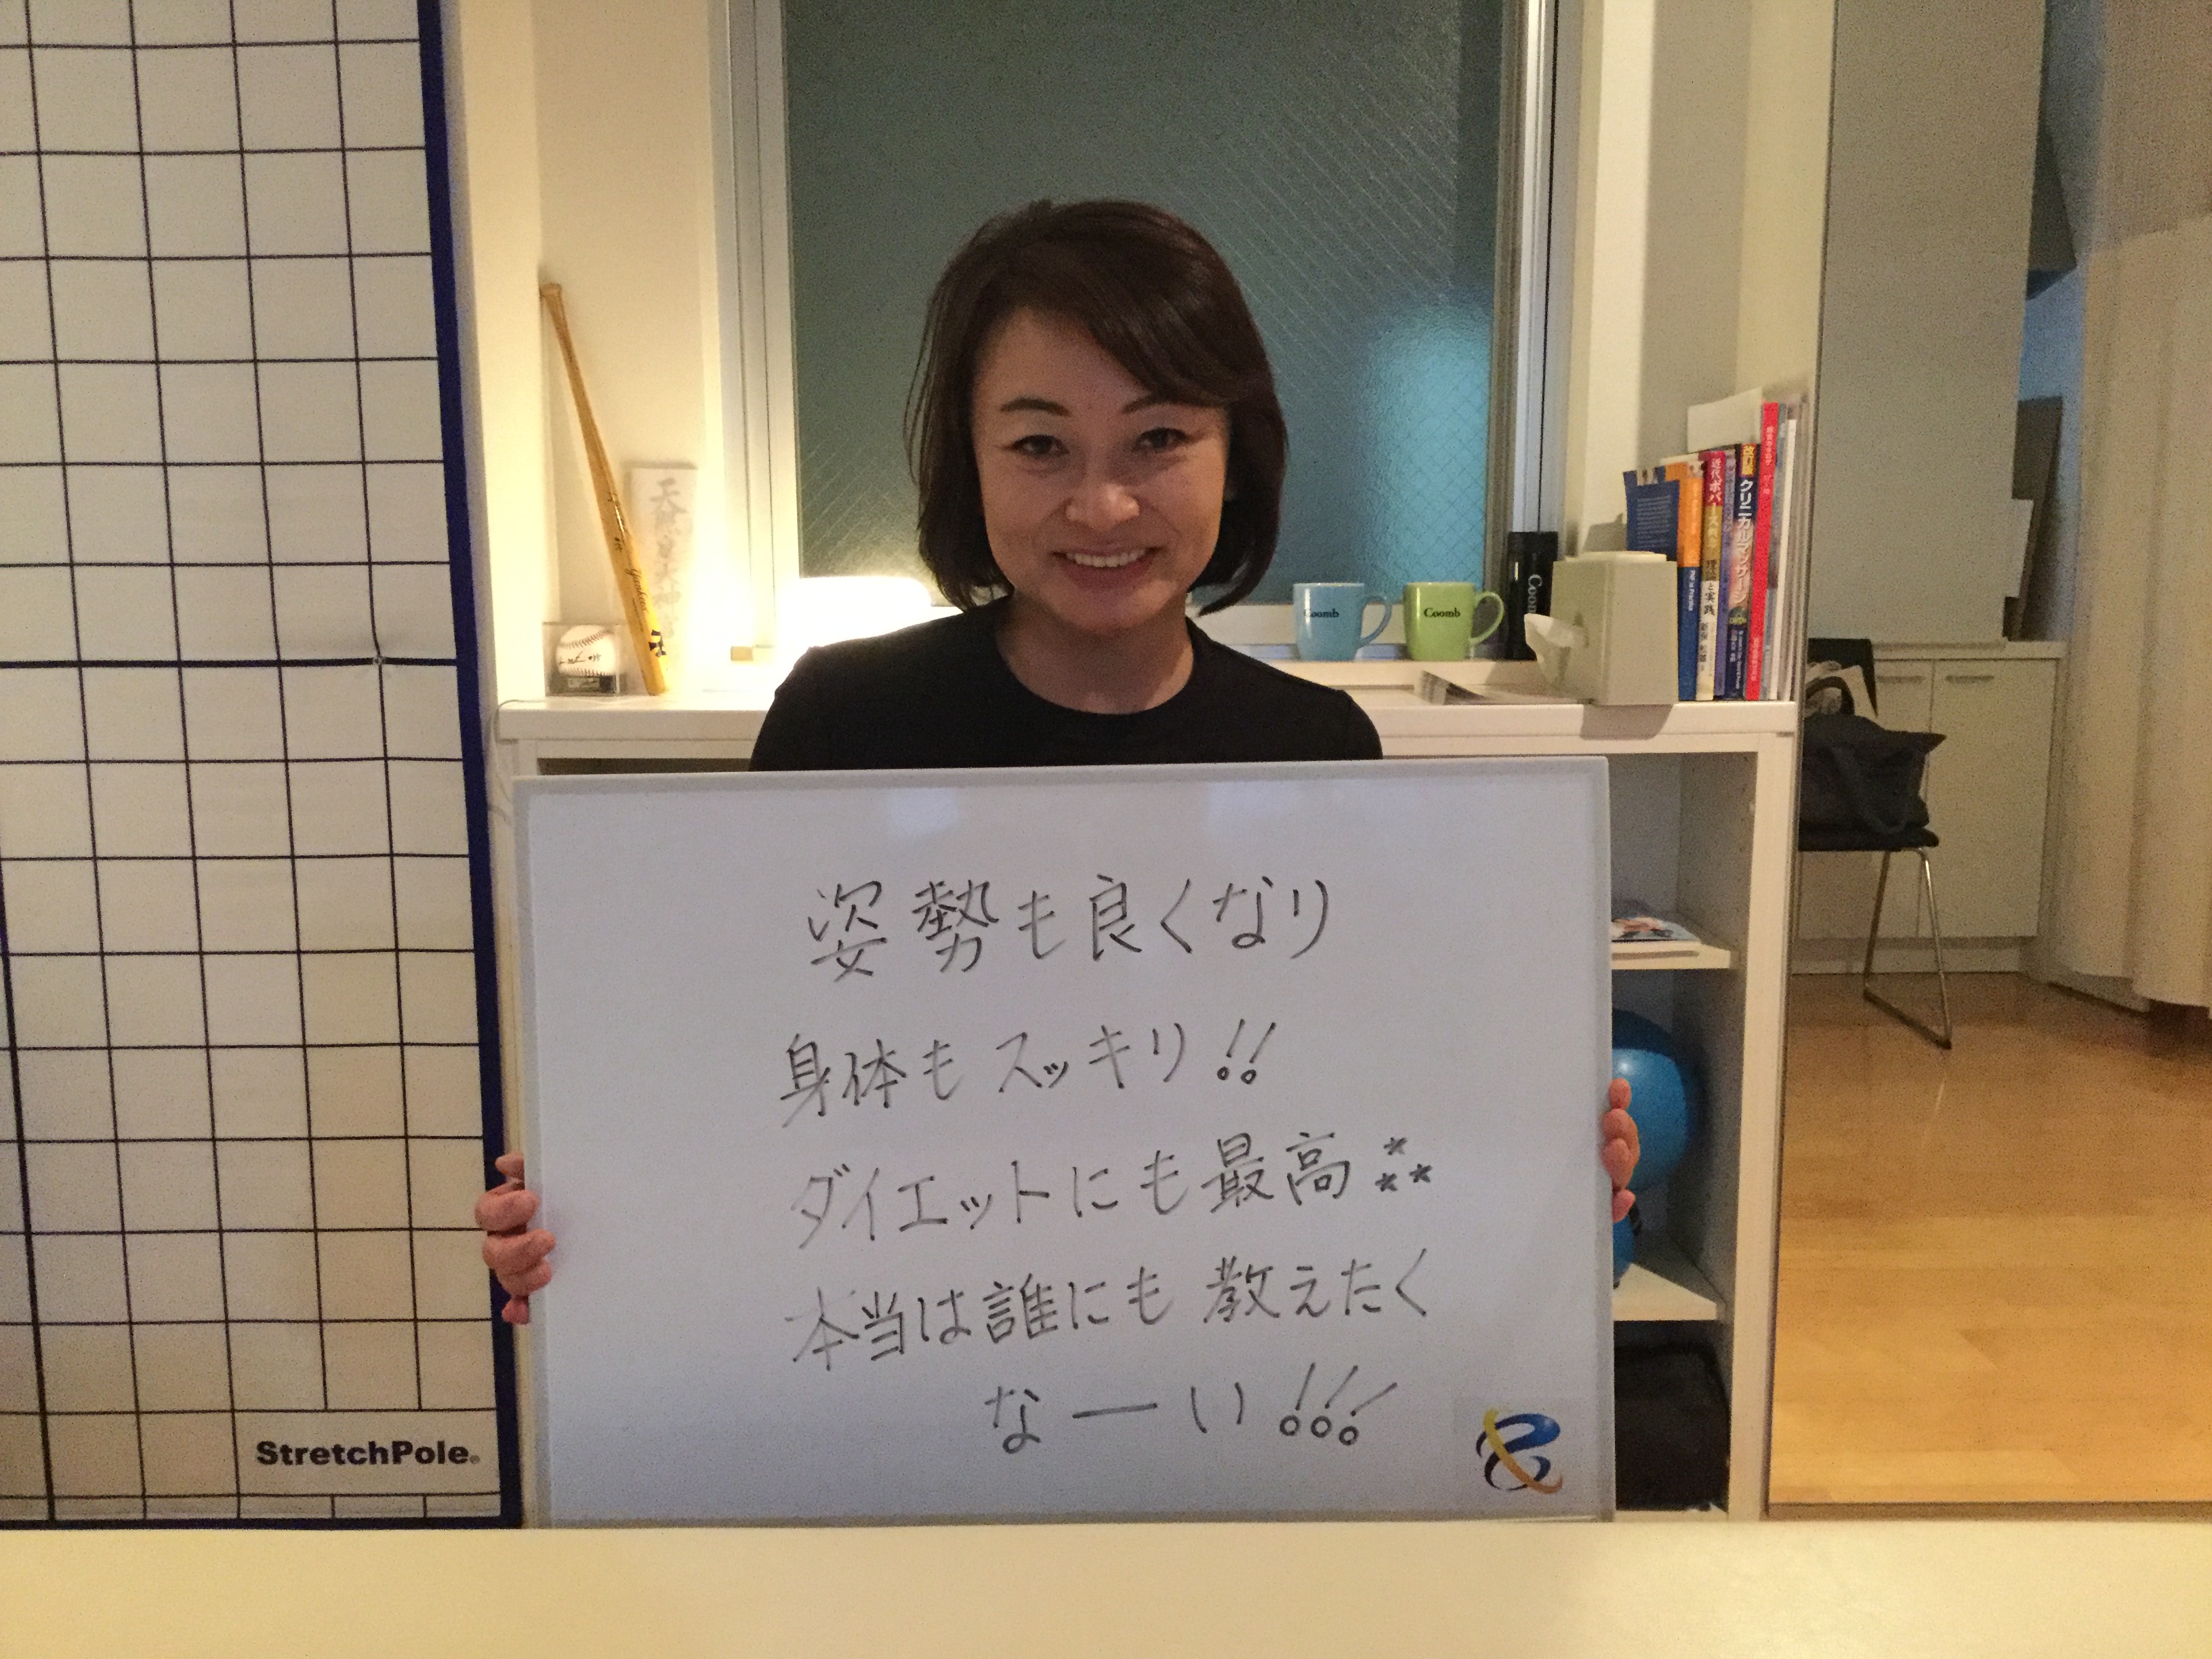 姿勢も良くなり
身体もスッキリ!!
ダイエットにも最高⁂
本当は誰にも教えたく
なーい!!!
StretchPole®
Coomb
Coomb
Yankees
改訂版
クリニカルマッサージ